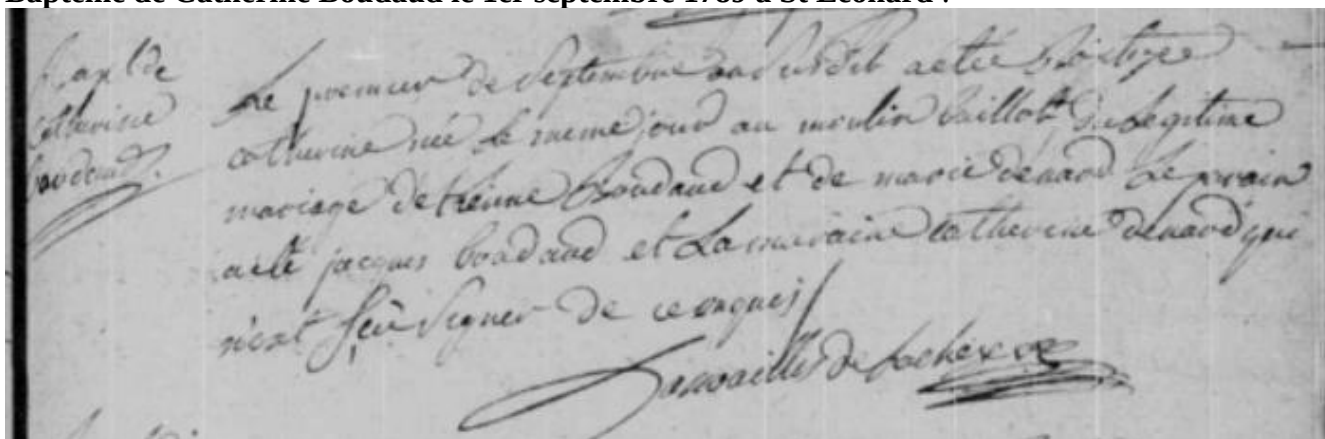 Baptême de Catherine Boudaud le 1er septembre 1785 à St Léonard :
Bapt de
catherine
boudaud.
Le premier de Septembre an susdit a eté Baptizé
catherine née le meme jour au moulin baillot du Legitime
mariage detienne Boudaud et de marie denard Le parain
a eté jacques boudaud et La maraine catherine denard qui
n'ont sçu signer de ce enquis
de